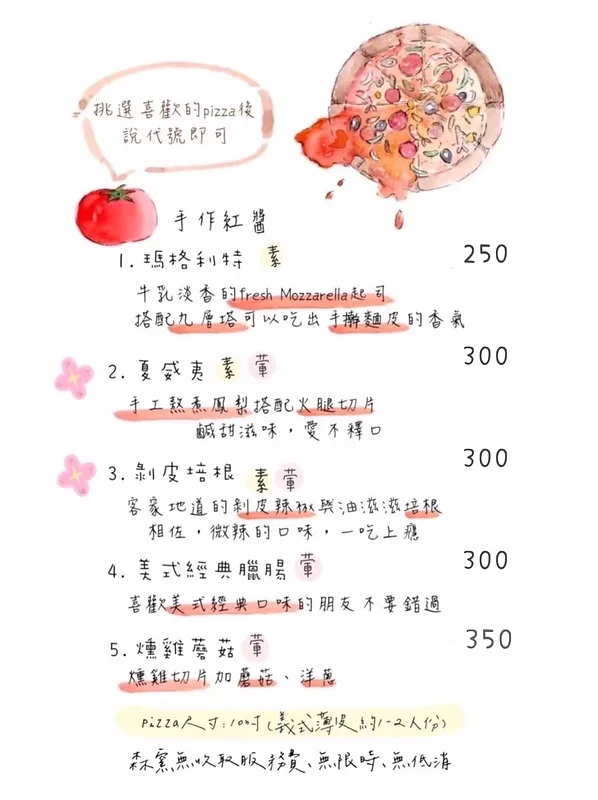 挑選喜歡的pizza後
說代號即可
手作紅醬
1. 瑪格利特 素 250
牛乳淡香的fresh Mozzarella起司
搭配九層塔可以吃出手擀麵皮的香氣
2. 夏威夷 素 葷 300
手工熬煮鳳梨搭配火腿切片
鹹甜滋味，愛不釋口
3. 剝皮培根 素 葷 300
客家地道的剝皮辣椒與油滋滋培根
相佐，微辣的口味，一吃上癮
4. 美式經典臘腸 葷 300
喜歡美式經典口味的朋友不要錯過
5. 燻雞蘑菇 葷 350
燻雞切片加蘑菇、洋蔥
pizza尺寸:10吋(義式薄皮約1-2人份)
森窯無收取服務費、無限時、無低消